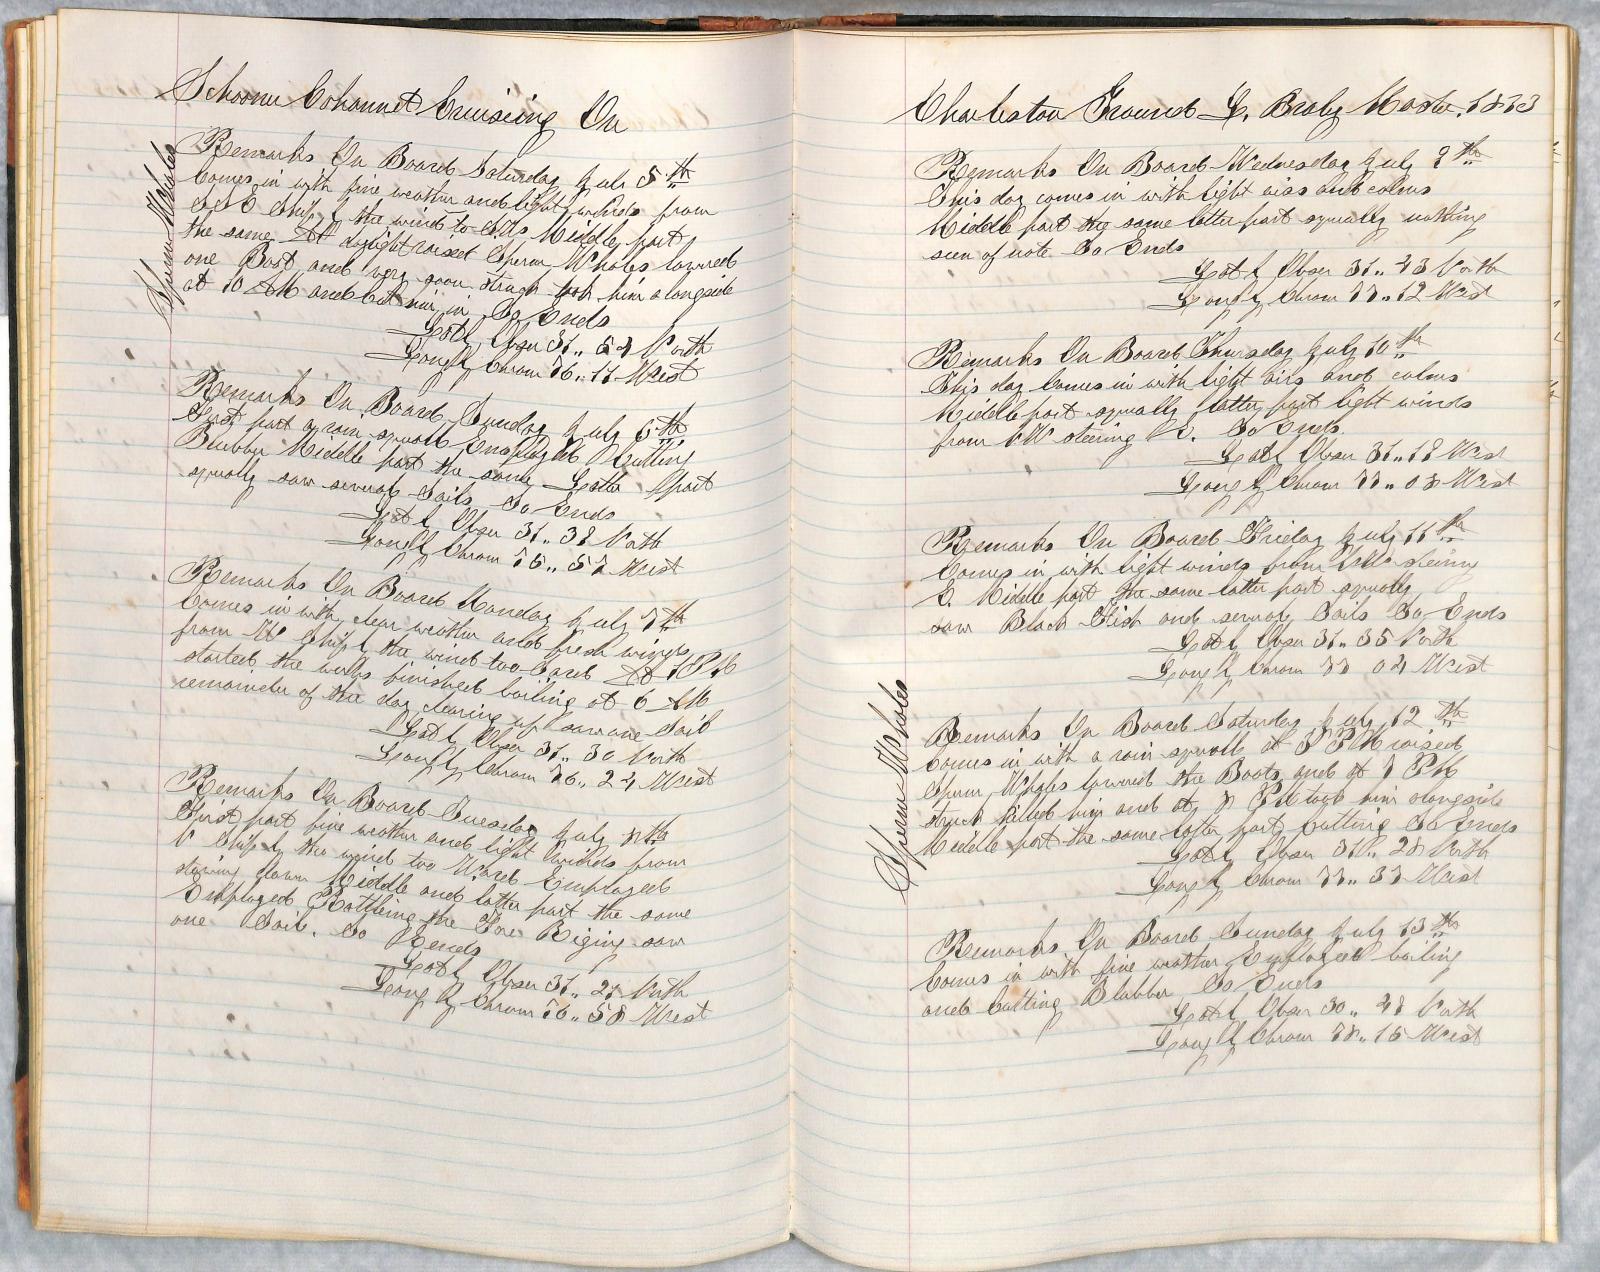 Schooner Cohannet Cruising On
Sperm Whales
Remarks On Board Saturday July 5th
Comes in with fine weather and light winds from
the wind to Middle part
the same At daylight raised Sperm Whales lowered
one Boat and very soon struck took him alongside
at 10 AM and cut him in So Ends
Lat by Obser 31,, 54 North
Long by Chrom 76,, 17 West
Remarks On Board Sunday July 6th
First part a rain squall Employed Cutting
Blubber Middle part the same Latter part
squally saw several Sails So Ends
Lat by Obser 31,, 39 North
Long by Chrom 76,, 57 West
Remarks On Board Monday July 7th
Comes in with clear weather and fresh winds
from Ship by the wind too At 1 PM
started the works finished boiling at 6 AM
remainder of the day clearing up saw one Sail
Lat by Obser 31,, 30 North
Long by Chrom 76,, 24 West
Remarks On Board Tuesday July 8th
First part fine weather and light winds from
Ship by the wind too Employed
stowing down Middle and latter part the same
Employed Rattleing the Fore Riging saw
one Sail. So Ends
Lat by Obser 31,, 27 North
Long by Chrom 76,, 58 West
Charleston Ground Master. 1873
Remarks On Board Wednesday July 9th
This day comes in with light airs and calms
Middle part the same latter part squally nothing
seen of note So Ends
Lat by Obser 31,, 43 North
Long by Chrom 77,, 12 West
Remarks On Board Thursday July 10th
This day Comes in with light airs and calms
Middle part squally latter part light winds
from steering So Ends.
Lat by Obser 31,, 19 West
Long by Chrom 77,, 08 West
Remarks On Board Friday July 11th
Comes in with light winds from steering
Middle part the same latter part squally
saw Black Fish and several Sails So Ends
Lat by Obser 31,, 35 North
Long by Chrom 77 04 West
Sperm Whales
Remarks On Board Saturday July 12th
Comes in with a rain squall at PM raised
Sperm Whales lowered the Boats and at 7 PM
struck killed him and at 8 PM took him alongside
Middle part the same latter part Cutting So Ends
Lat by Obser 31,, 28 North
Long by Chrom 77,, 37 West
Remarks On Board Sunday July 13th
Comes in with fine weather Employed boiling
and Cutting Blubber So Ends
Lat by Obser 30,, 49 North
Long by Chrom 78,, 15 West